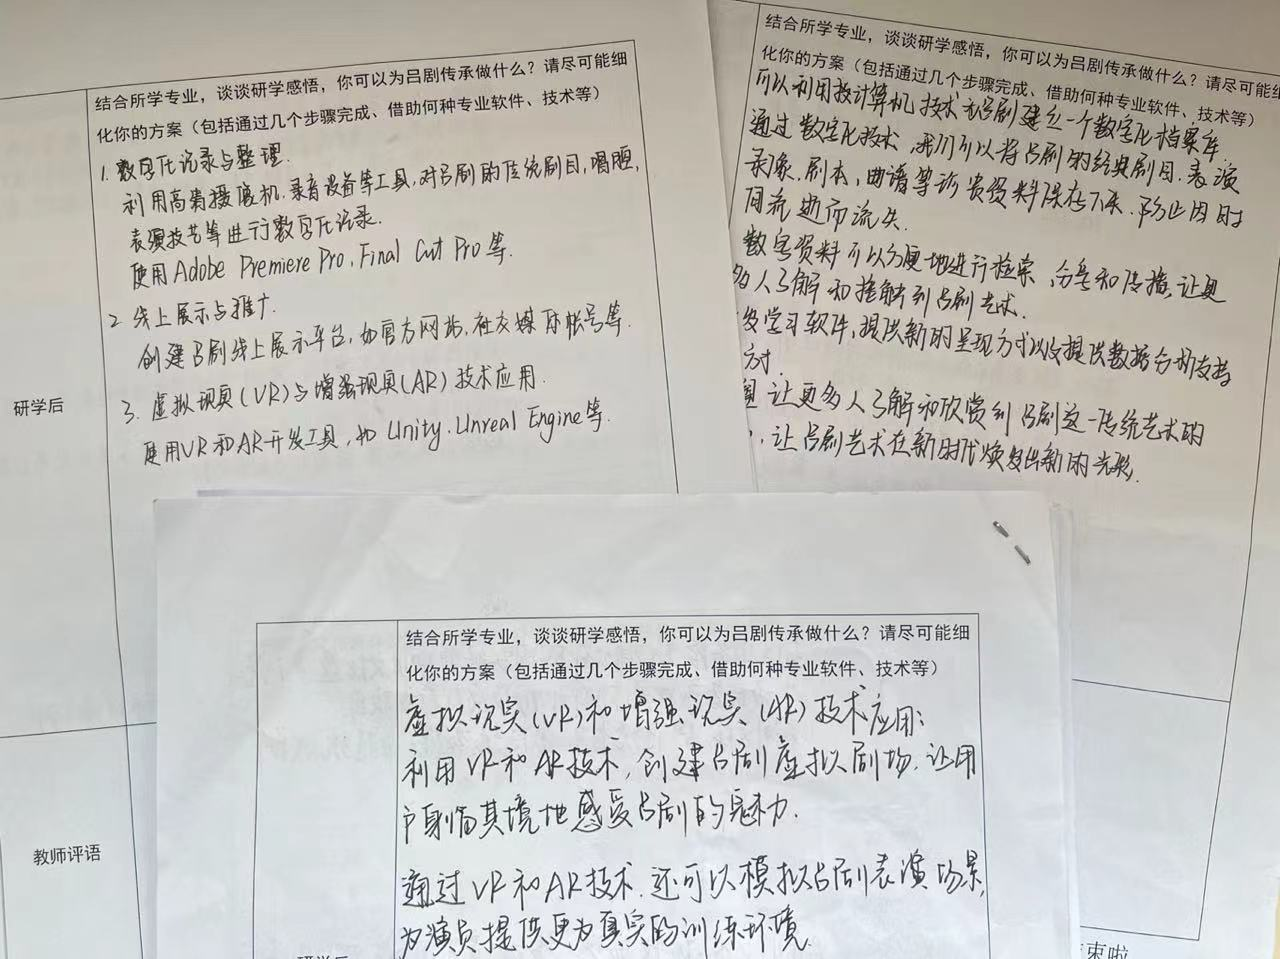 结合所学专业，谈谈研学感悟，你可以为吕剧传承做什么？请尽可能细
化你的方案（包括通过几个步骤完成、借助何种专业软件、技术等）
1. 数字化记录与整理.
利用高清摄像机.录音设备等工具,对吕剧的传统剧目,唱腔,
表演技艺等进行数字化记录.
使用Adobe Premiere Pro,Final Cut Pro等.
2 线上展示与推广.
创建吕剧线上展示平台,如官方网站,社交媒体帐号等.
3. 虚拟现实(VR)与增强现实(AR)技术应用.
使用VR和AR开发工具,如Unity.Unreal Engine等.
研学后
教师评语
结合所学专业，谈谈研学感悟，你可以为吕剧传承做什么？请尽可能细
化你的方案（包括通过几个步骤完成、借助何种专业软件、技术等）
可以利用 计算机技术 吕剧建立一个数字化档案库
通过数字化技术,我们可以将吕剧的经典剧目.表演
录象.剧本,曲谱等 贵资料保存下来.防止因时
间流逝而流失.
数字资料可以方便地进行检索、分享和传播,让更
多人了解和接触到吕剧艺术.
发学习软件,提供新的呈现方式以及提供数据分析支持
方寸.
让更多人了解和欣赏到吕剧这一传统艺术的
,让吕剧艺术在新时代焕发出新的光彩.
结合所学专业，谈谈研学感悟，你可以为吕剧传承做什么？请尽可能细
化你的方案（包括通过几个步骤完成、借助何种专业软件、技术等）
虚拟现实(VR)和增强现实(AR)技术应用:
利用VR和AR技术,创建吕剧虚拟剧场,让用
户身临其境地感受吕剧的魅力.
通过VR和AR技术.还可以模拟吕剧表演场景,
为演员提供更为真实的训练环境.
研学后
束啦